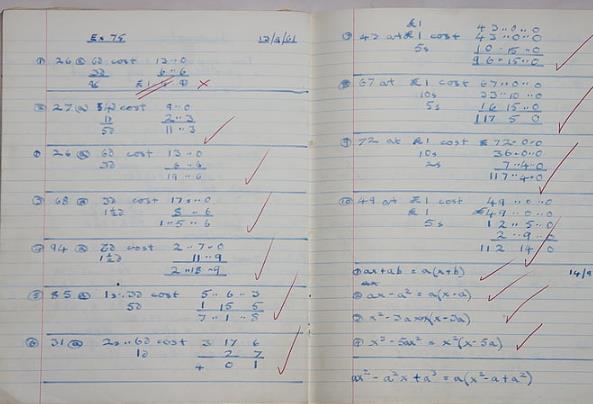 Ex 75 12/9/61
① 26 @ 6d cost 13 .. 0
3d 6 .. 6
② 27 @ 4d cost 9 .. 0
1d 2 .. 3
5d 11 .. 3
26 @ 6d cost 13 .. 0
3d 6 .. 6
19 .. 6
③ 68 @ 3d cost 17s .. 0
1½d 8 .. 6
1 .. 5 .. 6
94 @ cost 2 .. 7 .. 0
1½d 11 .. 9
2 .. 18 .. 9
⑤ 85 @ 1s .. 3d cost 5 .. 6 .. 3
5d 1 15 5
7 .. 1 .. 8
⑥ 31 @ 2s .. 6d cost 3 17 6
1d 2 7
4 0 1
£1 43 .. 0 .. 0
⑦ 43 at £1 cost 43 .. 0 .. 0
5s 10 .. 15 .. 0
96 .. 15 .. 0
⑧ 67 at £1 cost 67 .. 0 .. 0
10s 33 .. 10 .. 0
5s 16 15 .. 0
117 5 0
⑨ 72 at £1 cost 72 .. 0 .. 0
10s 36 .. 0 .. 0
2s 7 .. 4 .. 0
⑩ 49 at £1 cost 49 .. 0 .. 0
£1 49 .. 0 .. 0
5s 12 .. 5 .. 0
2 .. 9 .. 0
112 14 0
① ax + ab = a(x + b) 14/9
② ax - a² = a(x - a)
x² - 3ax x(x - 3a)
④ x³ - 5ax² = x²(x - 5a)
ax² - a²x + a³ = a(x² - a + a²)